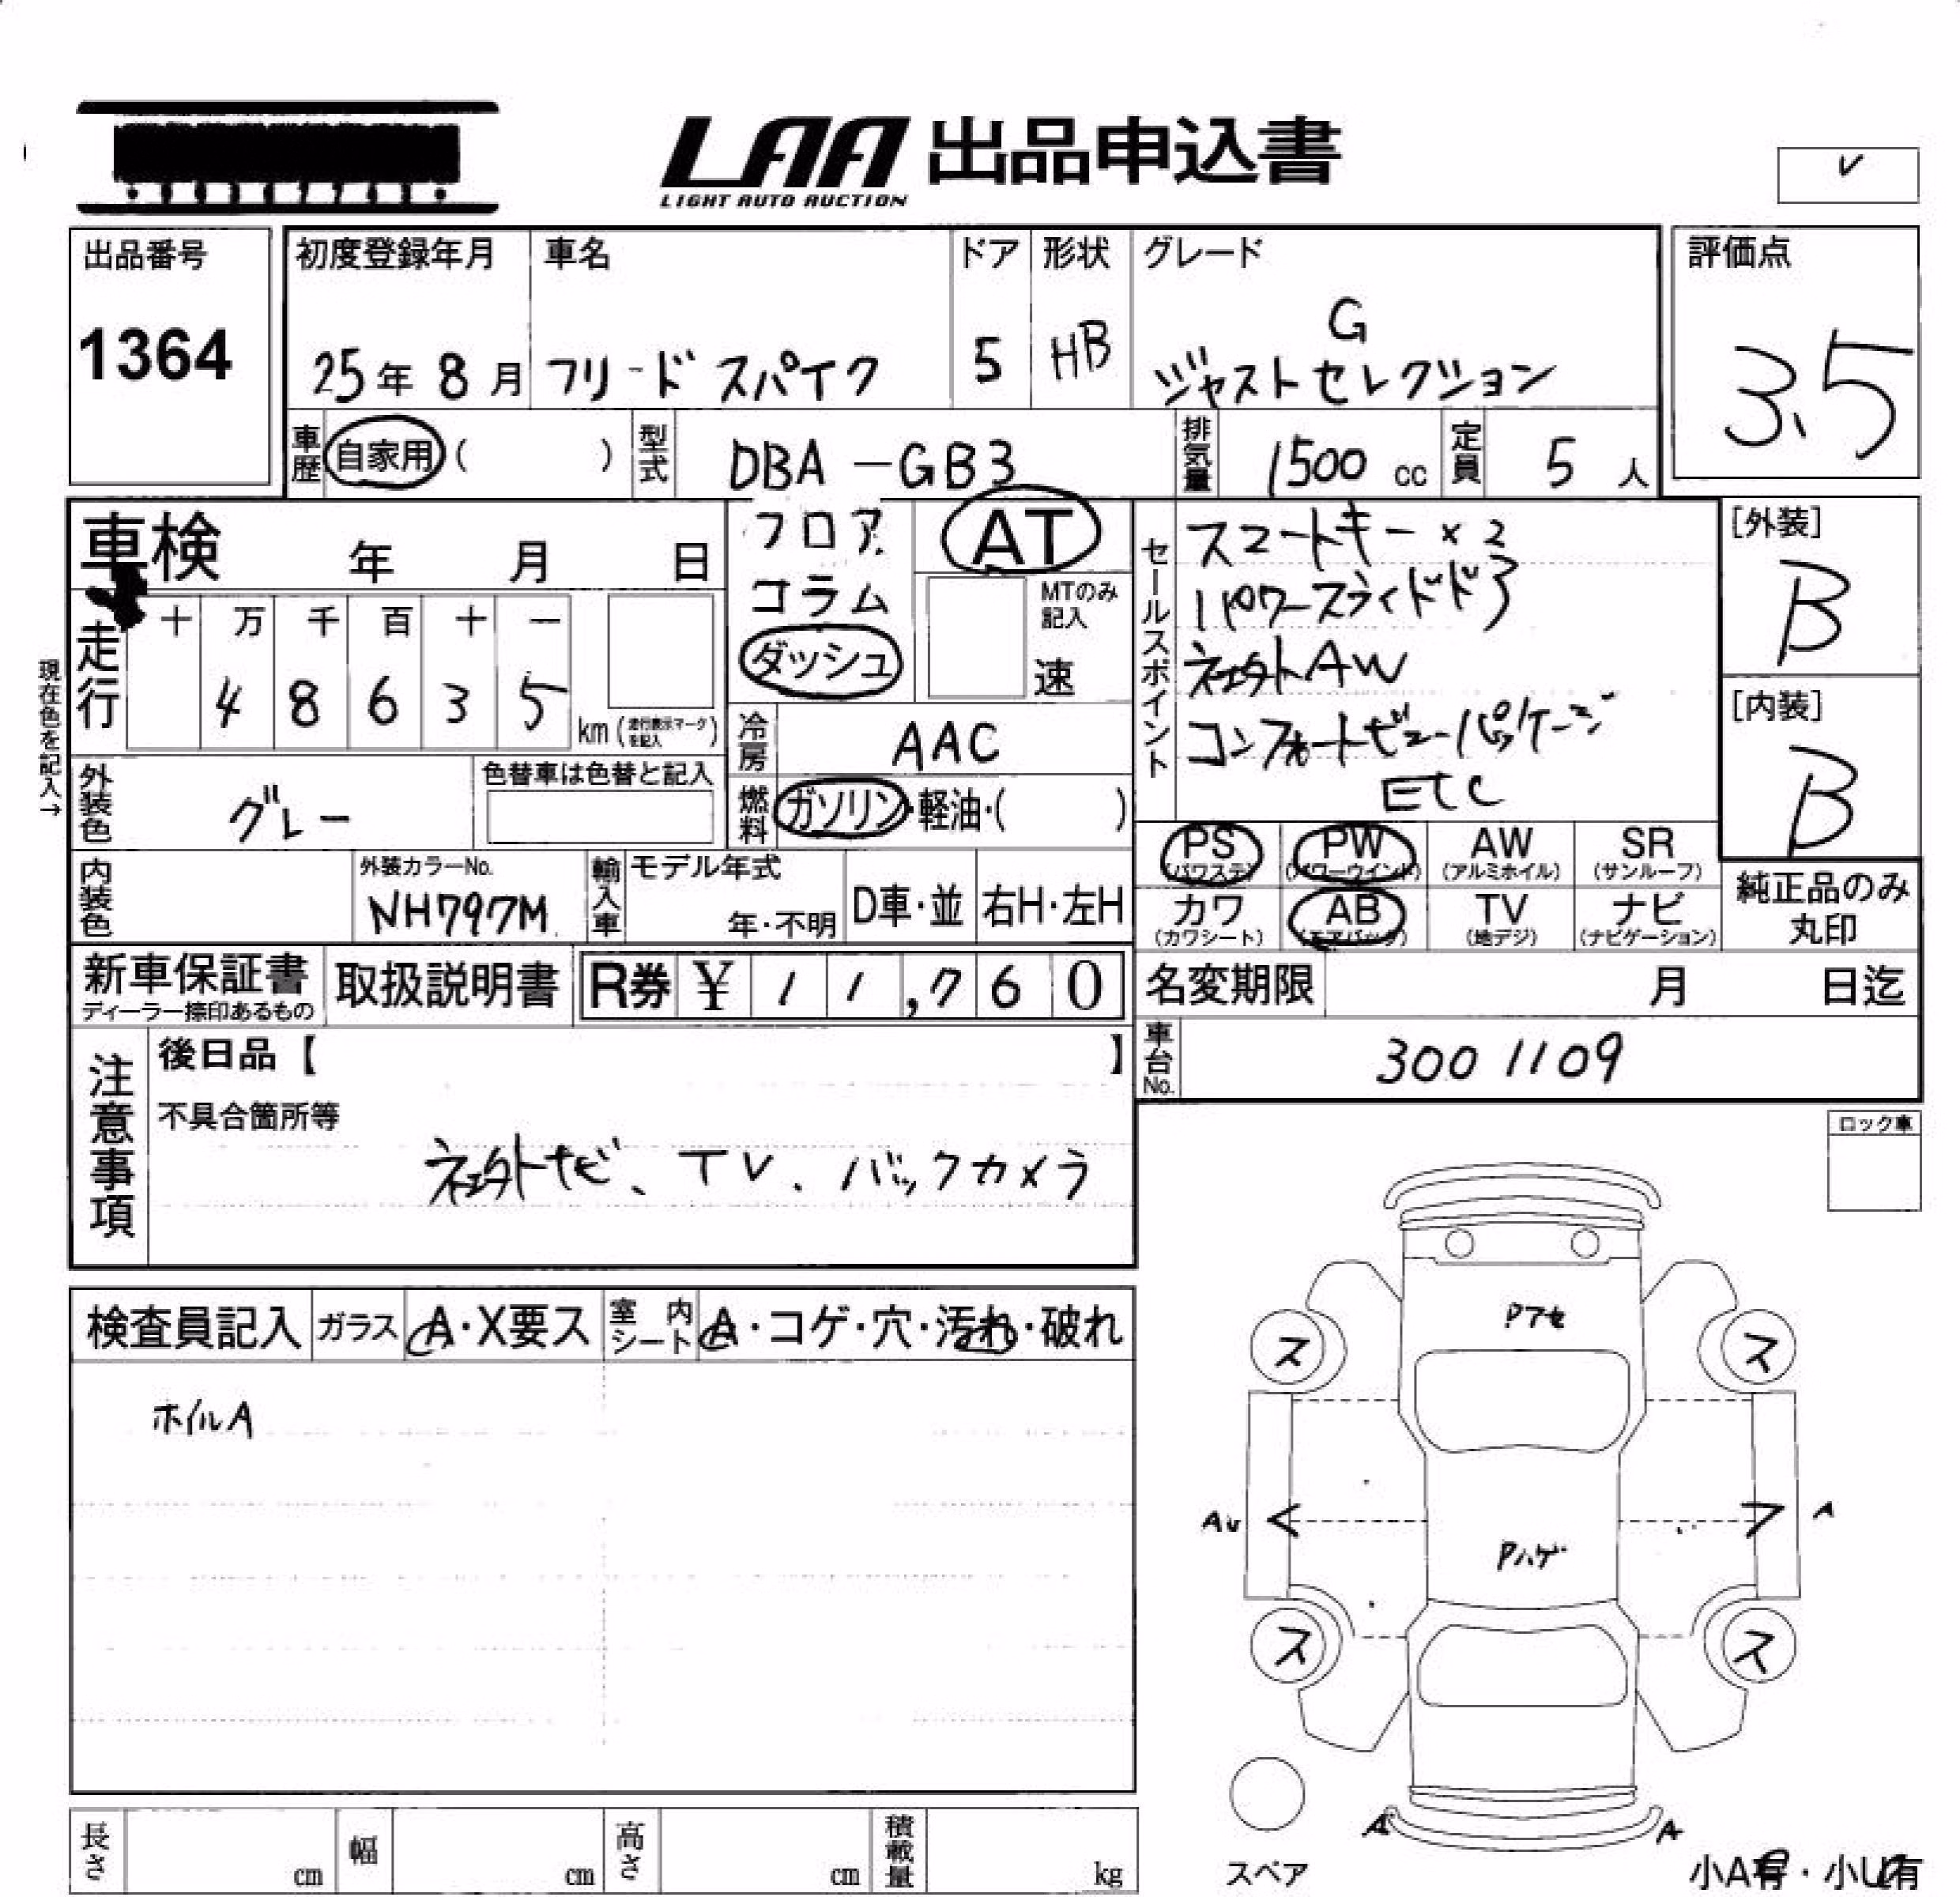 LAA 出品申込書
LIGHT AUTO AUCTION
✓
出品番号
1364
初度登録年月
25年 8月
車名
フリードスパイク
ドア
5
形状
HB
グレード
G
ジャストセレクション
評価点
3.5
車歴 自家用 ( )
型式 DBA-GB3
排気量 1500 cc
定員 5 人
車検 年 月 日
フロア
コラム
ダッシュ
AT
MTのみ
記入
速
セールスポイント
スマートキー×2
パワースライドドア
社外AW
コンフォートビューパッケージ
ETC
[外装]
B
[内装]
B
現在色を記入→
走行
十 万 千 百 十 一
4 8 6 3 5
km (走行表示マークを記入)
冷房 AAC
燃料 ガソリン・軽油・( )
外装色 グレー
色替車は色替と記入
内装色
外装カラーNo.
NH797M
輸入車
モデル年式
年・不明
D車・並
右H・左H
PS
(パワステ)
PW
(パワーウインド)
AW
(アルミホイル)
SR
(サンルーフ)
カワ
(カワシート)
AB
(エアバック)
TV
(地デジ)
ナビ
(ナビゲーション)
純正品のみ
丸印
新車保証書
ディーラー捺印あるもの
取扱説明書
R券 ¥ 11,760
名変期限 月 日迄
車台No. 3001109
注意事項
後日品【 】
不具合箇所等
社外ナビ、TV、バックカメラ
ロック車
検査員記入
ガラス A・X要ス
室内シート A・コゲ・穴・汚れ・破れ
ホイルA
Pアセ
ス
ス
AU
A
Pハゲ
ス
ス
A
A
スペア
小A有・小U有
長さ cm
幅 cm
高さ cm
積載量 kg